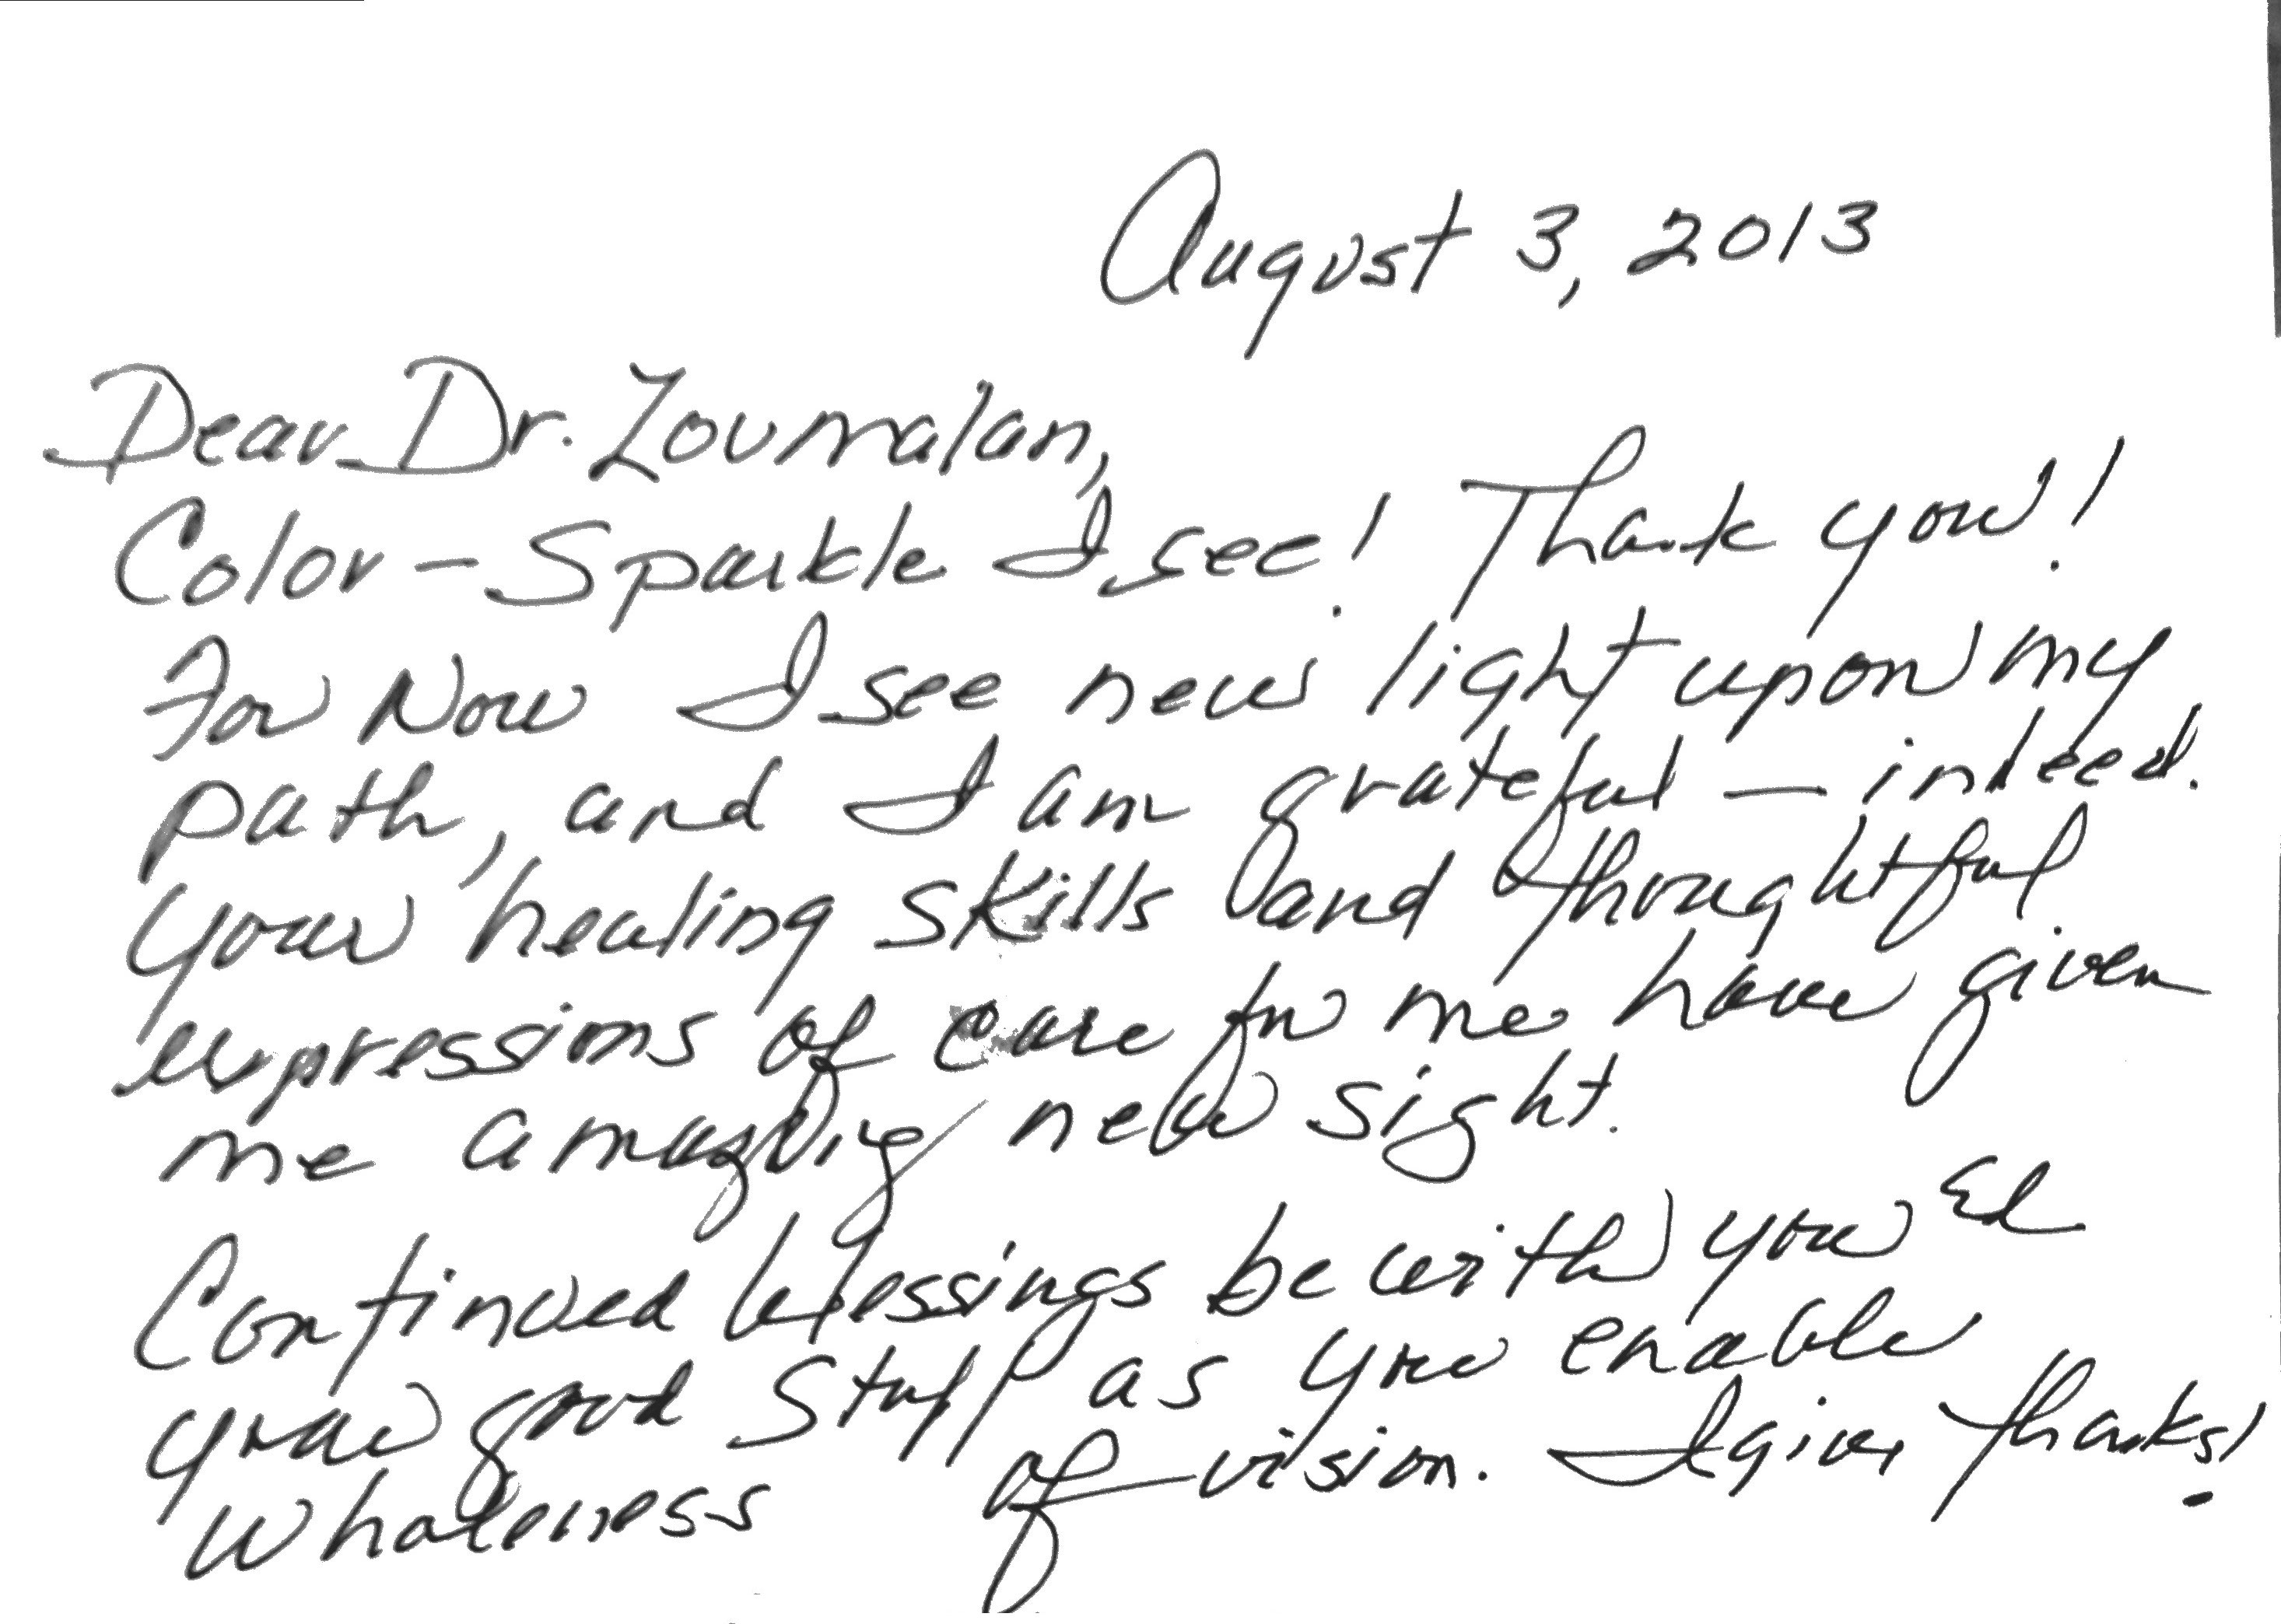 August 3, 2013
Dear Dr. Zoumalan,
Color - Sparkle I see! Thank you!
For Now I see new light upon my
path, and I am grateful - indeed.
Your healing skills and thoughtful
expressions of care for me have given
me amazing new sight.
Continued blessings be with you &
your good Staff as you enable
wholeness of vision. I give thanks!